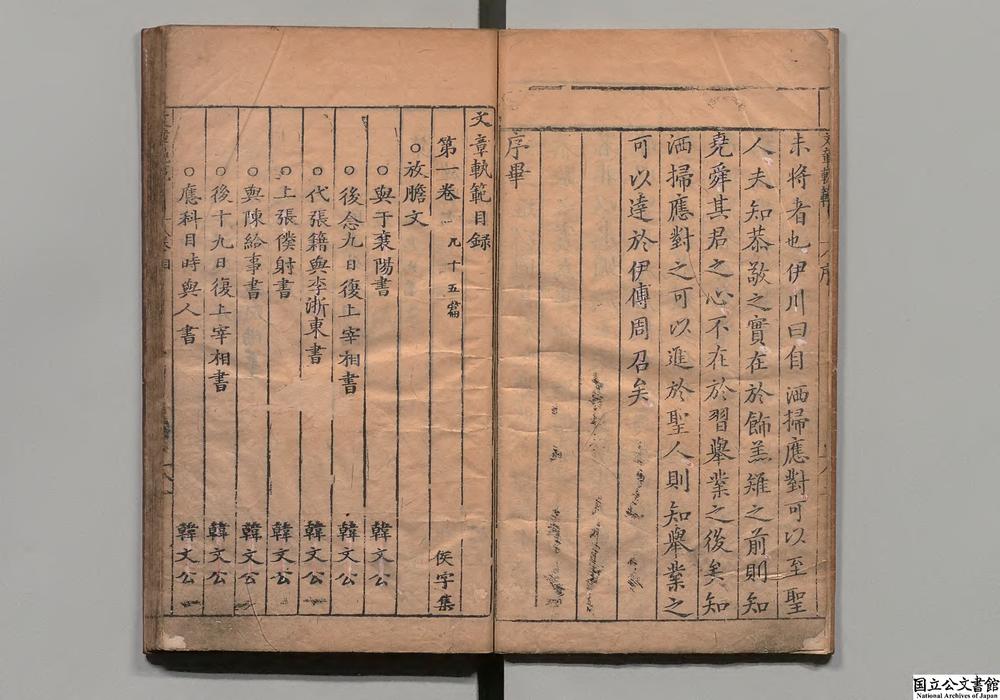 未將者也伊川曰自洒掃應對可以至聖
人夫知恭敬之實在於飾羔雉之前則知
堯舜其君之心不在於習擧業之後矣知
洒掃應對之可以進於聖人則知擧業之
可以達於伊傅周召矣
序畢
文章軌範目録
第一卷 凡十五篇 侯字集
○放膽文
○與于襄陽書 韓文公
○後念九日復上宰相書 韓文公
○代張籍與李浙東書 韓文公
○上張僕射書 韓文公
○與陳給事書 韓文公
○後十九日復上宰相書 韓文公
○應科目時與人書 韓文公
国立公文書館
National Archives of Japan